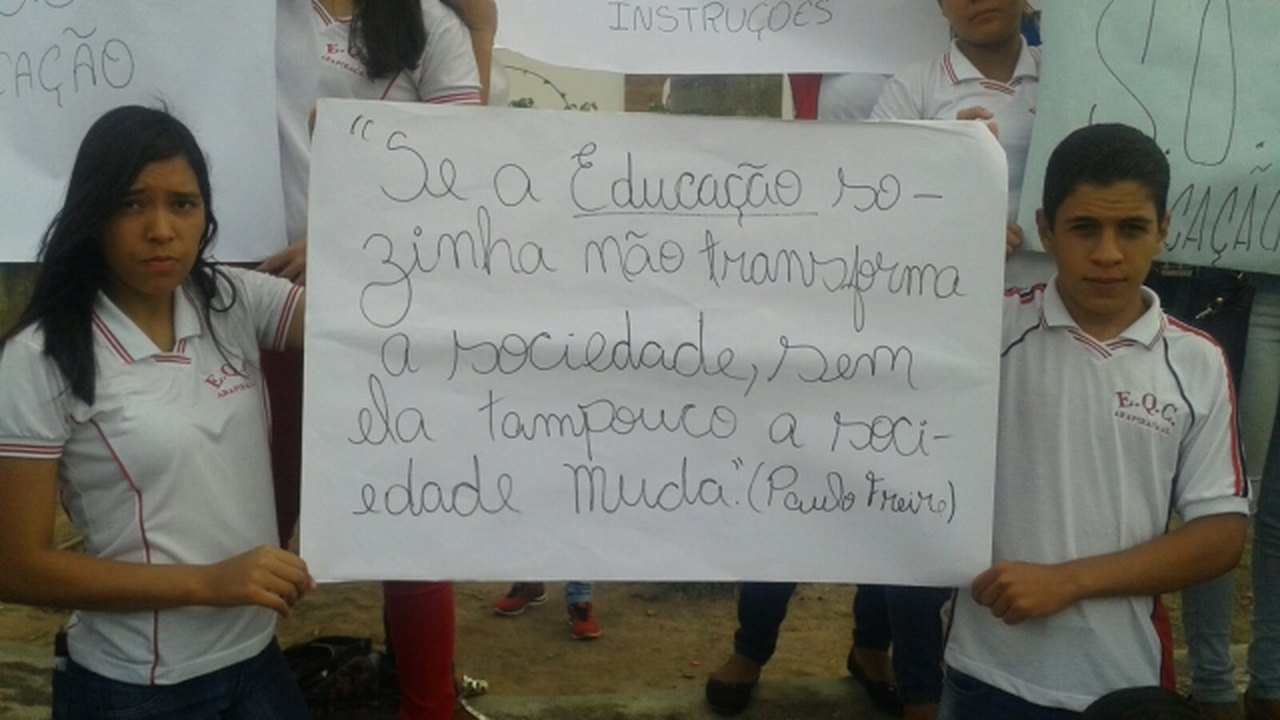 CAÇÃO
E.Q.C.
INSTRUÇÕES
S.O.
CAÇÃO
"Se a Educação so-
zinha não transforma
a sociedade, sem
ela tampouco a soci-
edade muda." (Paulo Freire)
E.Q.C.
ARAPIRACA
E.Q.C.
ARAPIRACA-AL